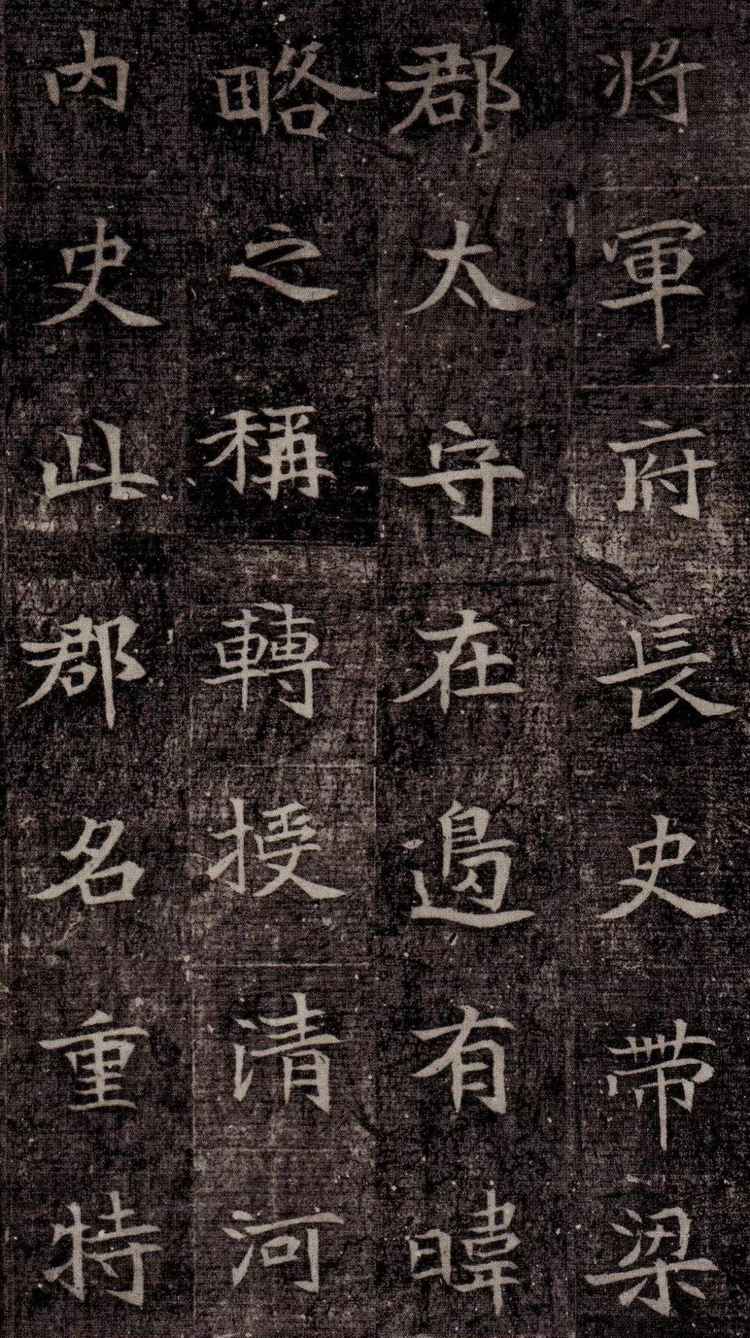 将軍府長史帶梁
郡太守在邊有暐
略之稱轉授清河
内史此郡名重特